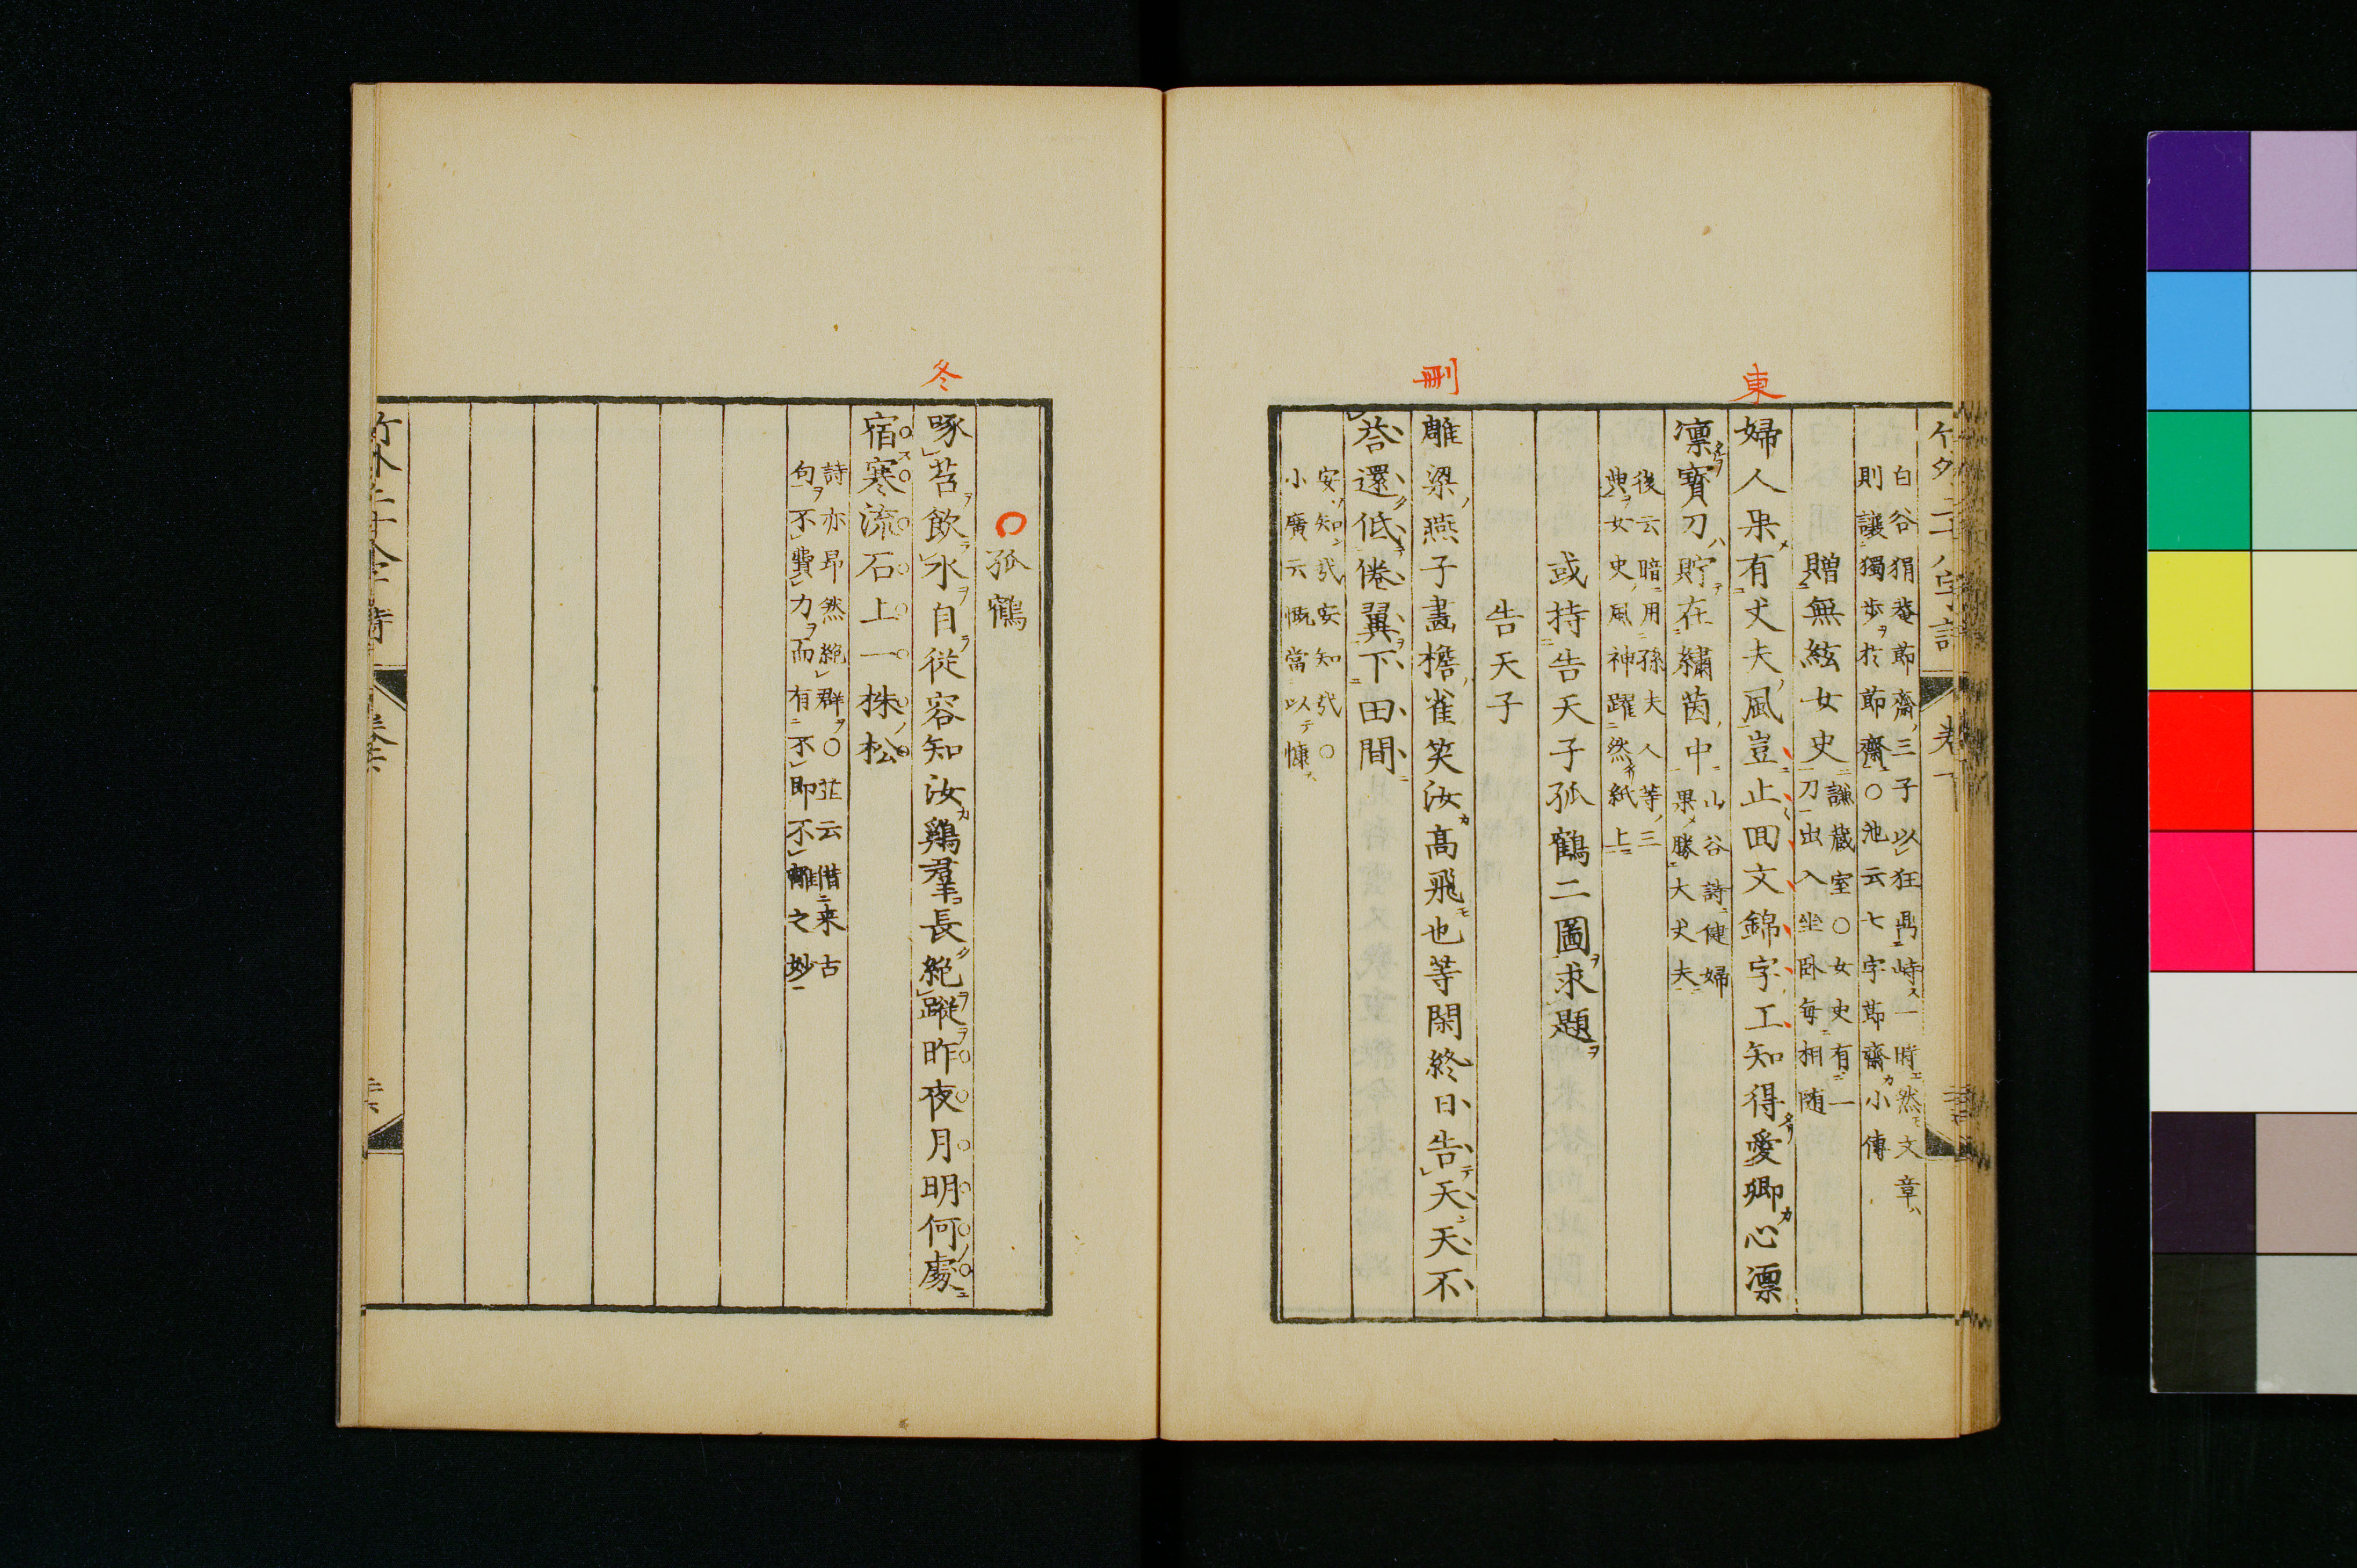 東
刪
白谷狷菴節齋三子以狂鼎峙一時然文章
則讓獨步於節齋〇池云七字節齋小傳
贈無絃女史
謙蔵室〇女史有一
刀出入坐臥每相随
婦人果有丈夫風豈止回文錦字工知得愛卿心凛
凛寶刀貯在繡茵中
山谷詩健婦
果勝大丈夫
後云暗用孫夫人等三
典女史風神躍然紙上
或持告天子孤鶴二圖求題
告天子
雕梁燕子畫檐雀笑汝高飛也等閑終日告天天不
荅還低倦翼下田間
安知弐安知弐〇
小廣云慨當以慷
冬
〇孤鶴
啄苔飲水自從容知汝鷄羣長絕蹤昨夜月明何處
宿寒流石上一株松
詩亦昂然絕群〇芷云借来古
句不費力而有不即不離之妙